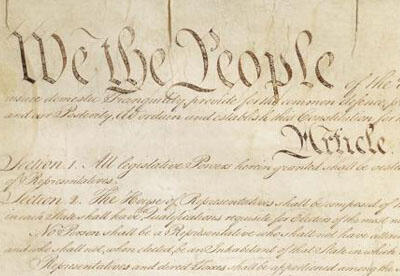 We the People of the
insure domestic Tranquility, provide for the common defence,
and our Posterity, do ordain and establish this Constitution for
Article
Section 1. All legislative Powers herein granted shall be vested
of Representatives.
Section 2. The House of Representatives shall be composed of
in each State shall have Qualifications requisite for Electors of the most
No Person shall be a Representative who shall not have
and who shall not, when elected, be an Inhabitant of that State in which
Representatives and direct Taxes shall be apportioned among the